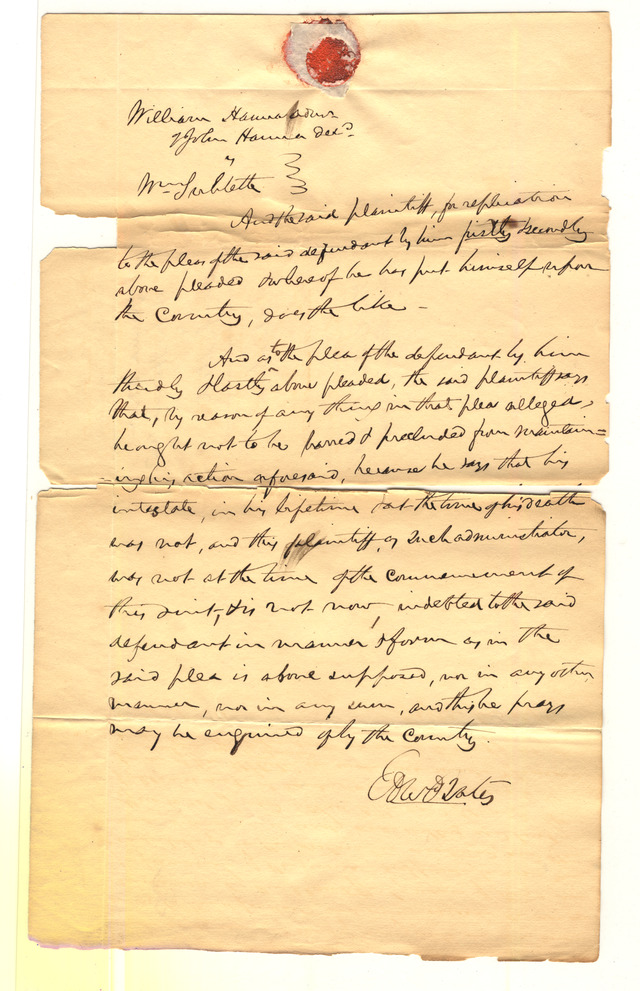 William Hanna admr
of John Hanna decd
vs
Wm Sublette
And the said plaintiff, for replication
to the pleas of the said defendant by him firstly & secondly
above pleaded & whereof he has put himself upon
the Country, does the like —
And as to the plea of the defendant by him
thirdly & lastly above pleaded, the said plaintiff says
that, by reason of any thing in that plea alleged,
he ought not to be barred & precluded from maintain=
=ing his action aforesaid, because he says that his
intestate, in his lifetime & at the time of his death
was not, and this plaintiff, as such administrator,
was not at the time of the commencement of
this suit, & is not now, indebted to the said
defendant in manner & form as in the
said plea is above supposed, nor in any other
manner, nor in any sum, and this he prays
may be enquired of by the Country.
Edwd Yates